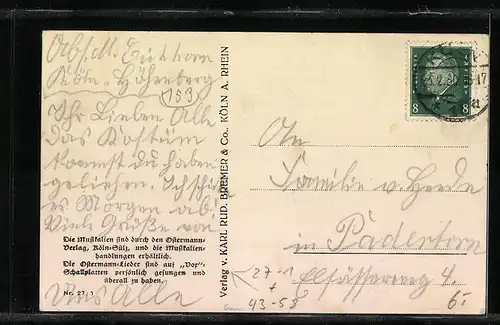 Abs. M. Eickhorn
Köln-Höhenberg
(153)
Ihr Lieben Alle
Das Kostüm
kannst du haben
geliehen. Ich schi
es Morgen ab!
Viele Grüße von
Die Musikalien sind durch den Ostermann-
Verlag, Köln-Sülz, und die Musikalien-
handlungen erhältlich.
Die Ostermann-Lieder sind auf „Vox“-
Schallplatten persönlich gesungen und
überall zu haben.
Nr. 27/1
Uns Alle
Verlag v. KARL RUD. BREMER & Co., KÖLN A. RHEIN
8 8
17
An
Familie v. Heede
in Paderborn
Elsässerweg 4.
27-1
+
43-58
6.-